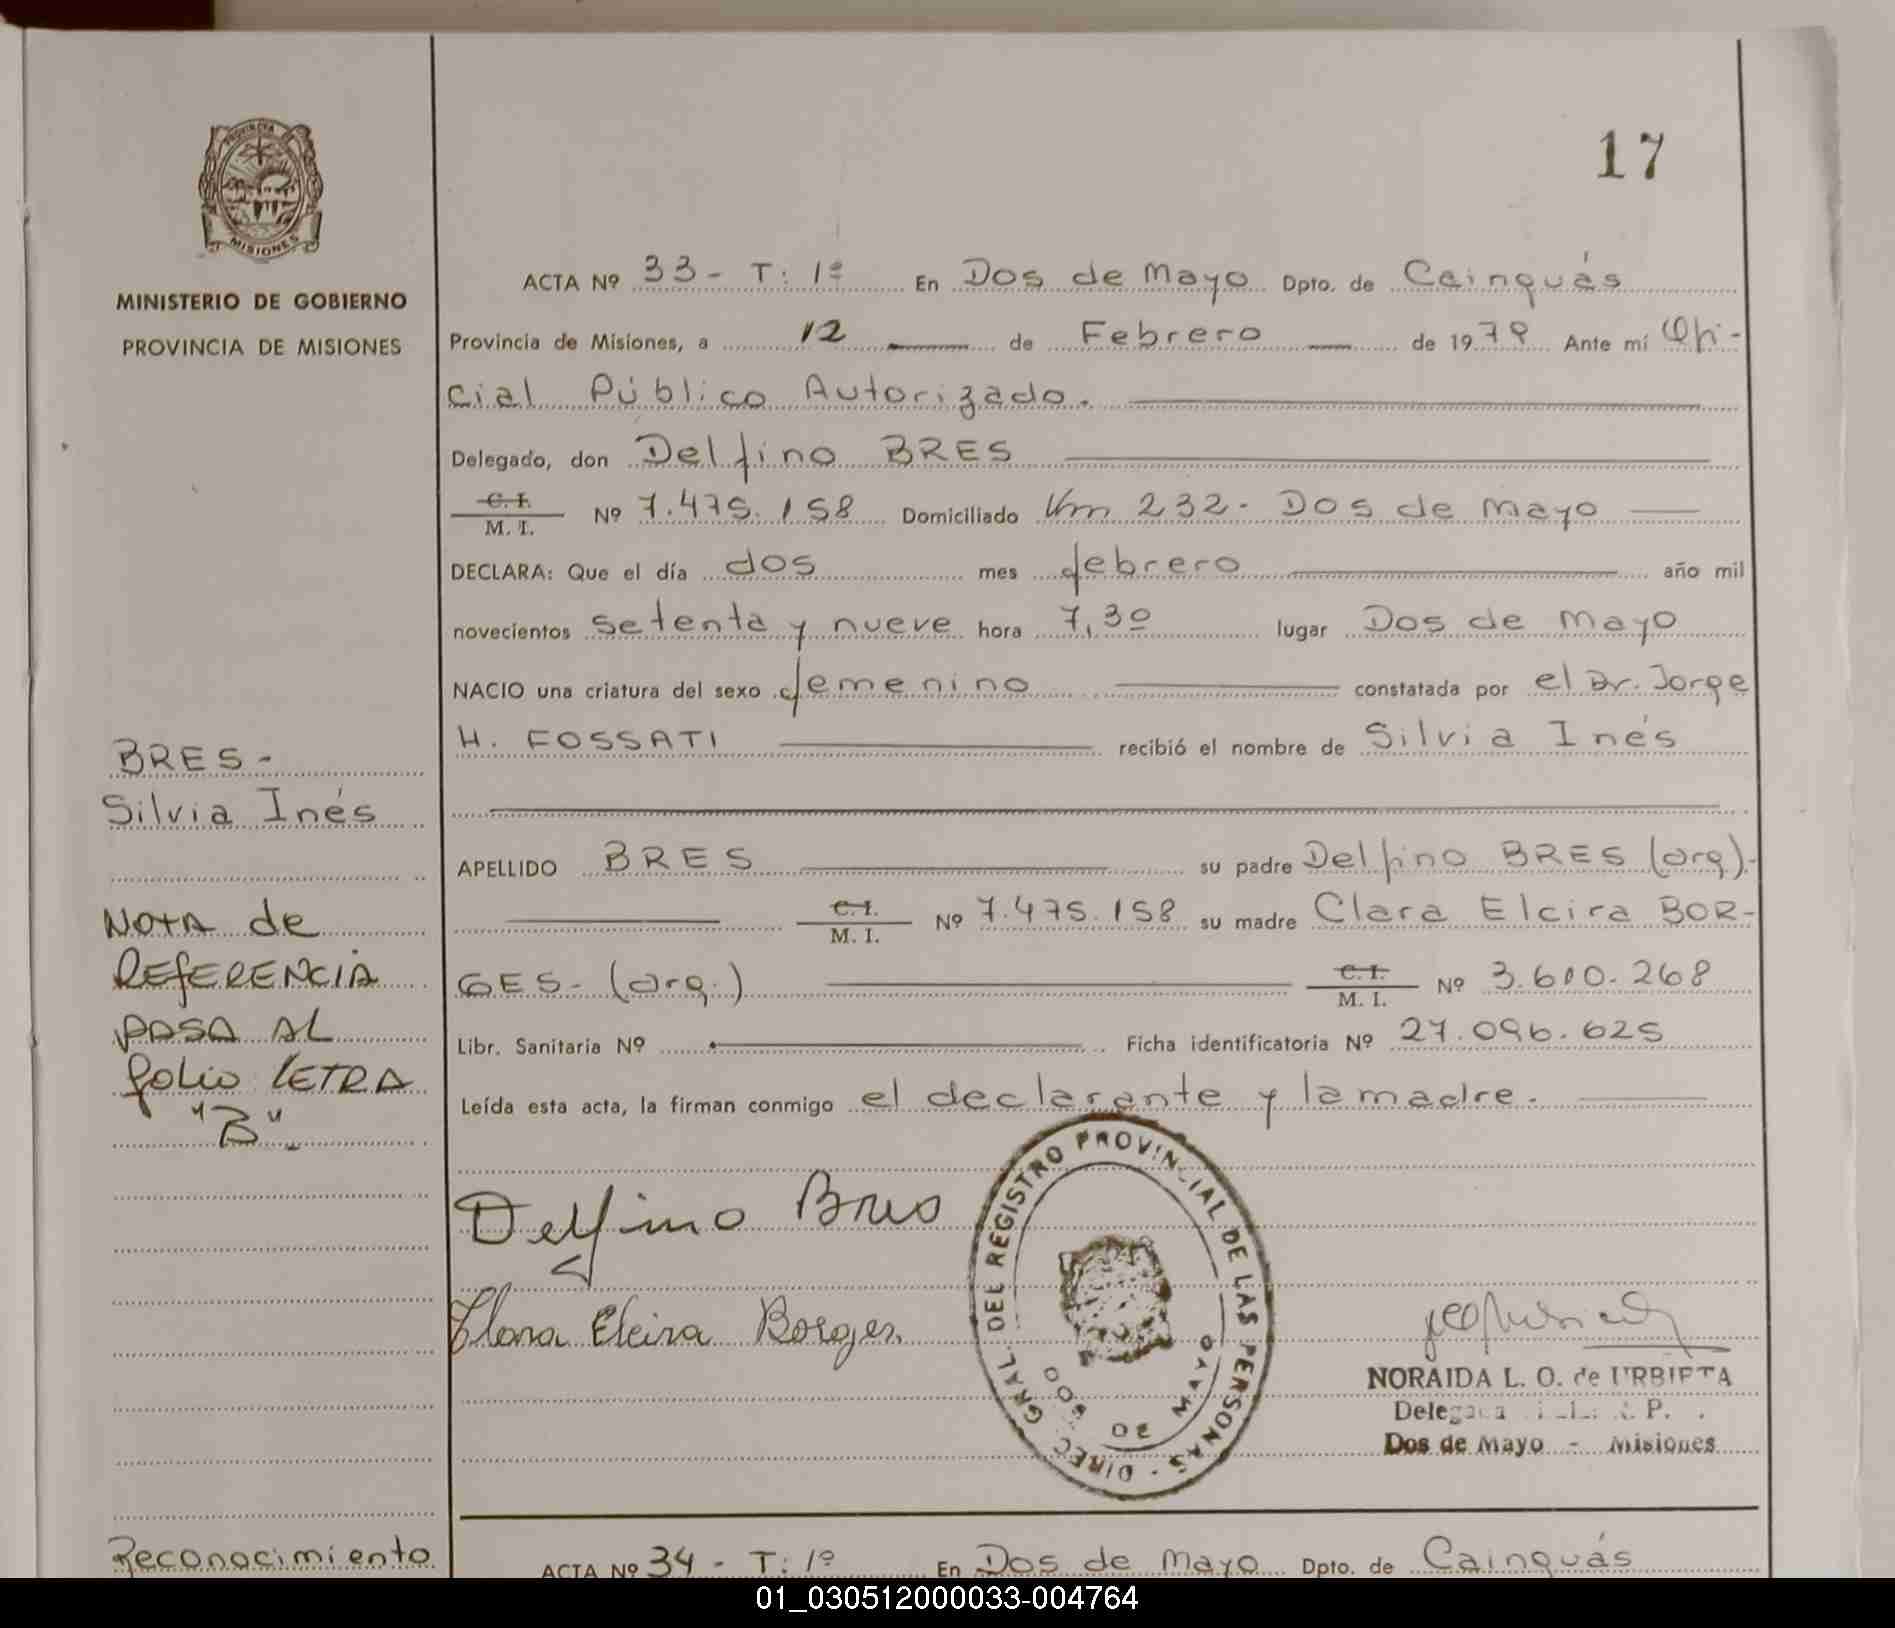 17
PROVINCIA
MISIONES
MINISTERIO DE GOBIERNO
PROVINCIA DE MISIONES
ACTA Nº 33 - T: 1º En Dos de Mayo Dpto. de Cainguás
Provincia de Misiones, a 12 de Febrero de 1979 Ante mí Ofi-
cial Público Autorizado.
Delegado, don Delfino BRES
C. I.
M. I. Nº 7.475.158 Domiciliado Km 232 - Dos de Mayo
DECLARA: Que el día dos mes febrero año mil
novecientos setenta y nueve hora 7,30 lugar Dos de Mayo
NACIO una criatura del sexo femenino constatada por el Dr. Jorge
H. FOSSATI recibió el nombre de Silvia Inés
BRES -
Silvia Inés
APELLIDO BRES su padre Delfino BRES (arg).-
C. I.
M. I. Nº 7.475.158 su madre Clara Elcira BOR-
GES - (arg.) C. I.
M. I. Nº 3.610.268
Libr. Sanitaria Nº Ficha identificatoria Nº 27.096.625
Leída esta acta, la firman conmigo el declarante y la madre.
NOTA de
REFERENCIA
PASA AL
folio LETRA
"B".-
Delfino Bres
Clara Elcira Borges
DIREC. GRAL. DEL REGISTRO PROVINCIAL DE LAS PERSONAS -
DOS DE MAYO
NORAIDA L. O. de URBIETA
Delegada
Dos de Mayo - Misiones
Reconocimiento
ACTA Nº 34 - T: 1º En Dos de Mayo Dpto. de Cainguás
01_030512000033-004764